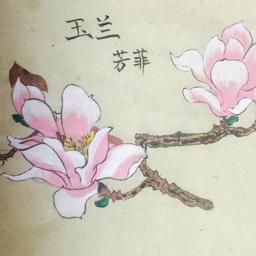 玉兰
芳菲